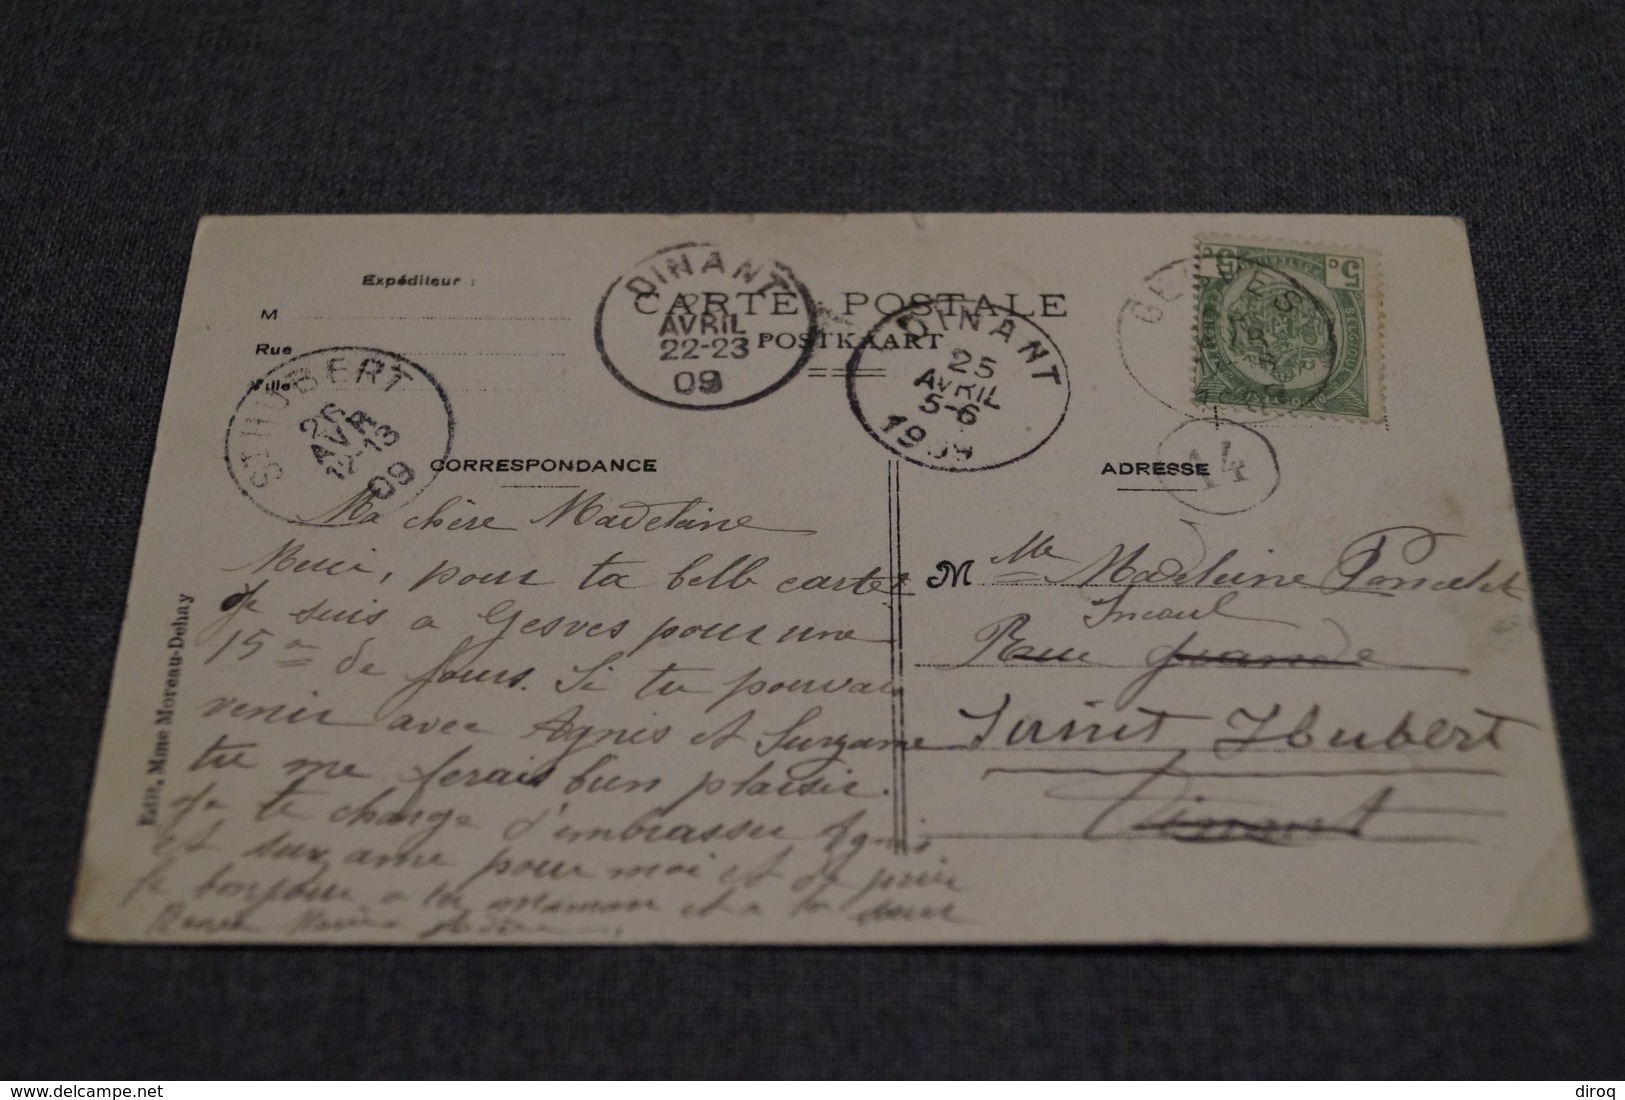 CARTE POSTALE
POSTKAART
Expéditeur :
M
Rue
Ville
DINANT
AVRIL
22-23
09
DINANT
25
AVRIL
5-6
1909
ST HUBERT
26
AVR
12-13
09
GESVES
5 5
BELGIQUE
14
CORRESPONDANCE
ADRESSE
Ma chère Madeleine
Merci, pour ta belle carte
Je suis a Gesves pour une
15ne de jours. Si tu pouvais
venir avec Agnis et Suzanne
tu me ferais bien plaisir.
Je te charge d'embrasser Agnis
et Suzanne pour moi et de
le bonjour a ta Maman et a ta sœur
M lle Madeleine Poncelet
Rue Grande
Saint Hubert
Dinant
Edit. Mme Moreau-Dehay
delcampe.net
diroq